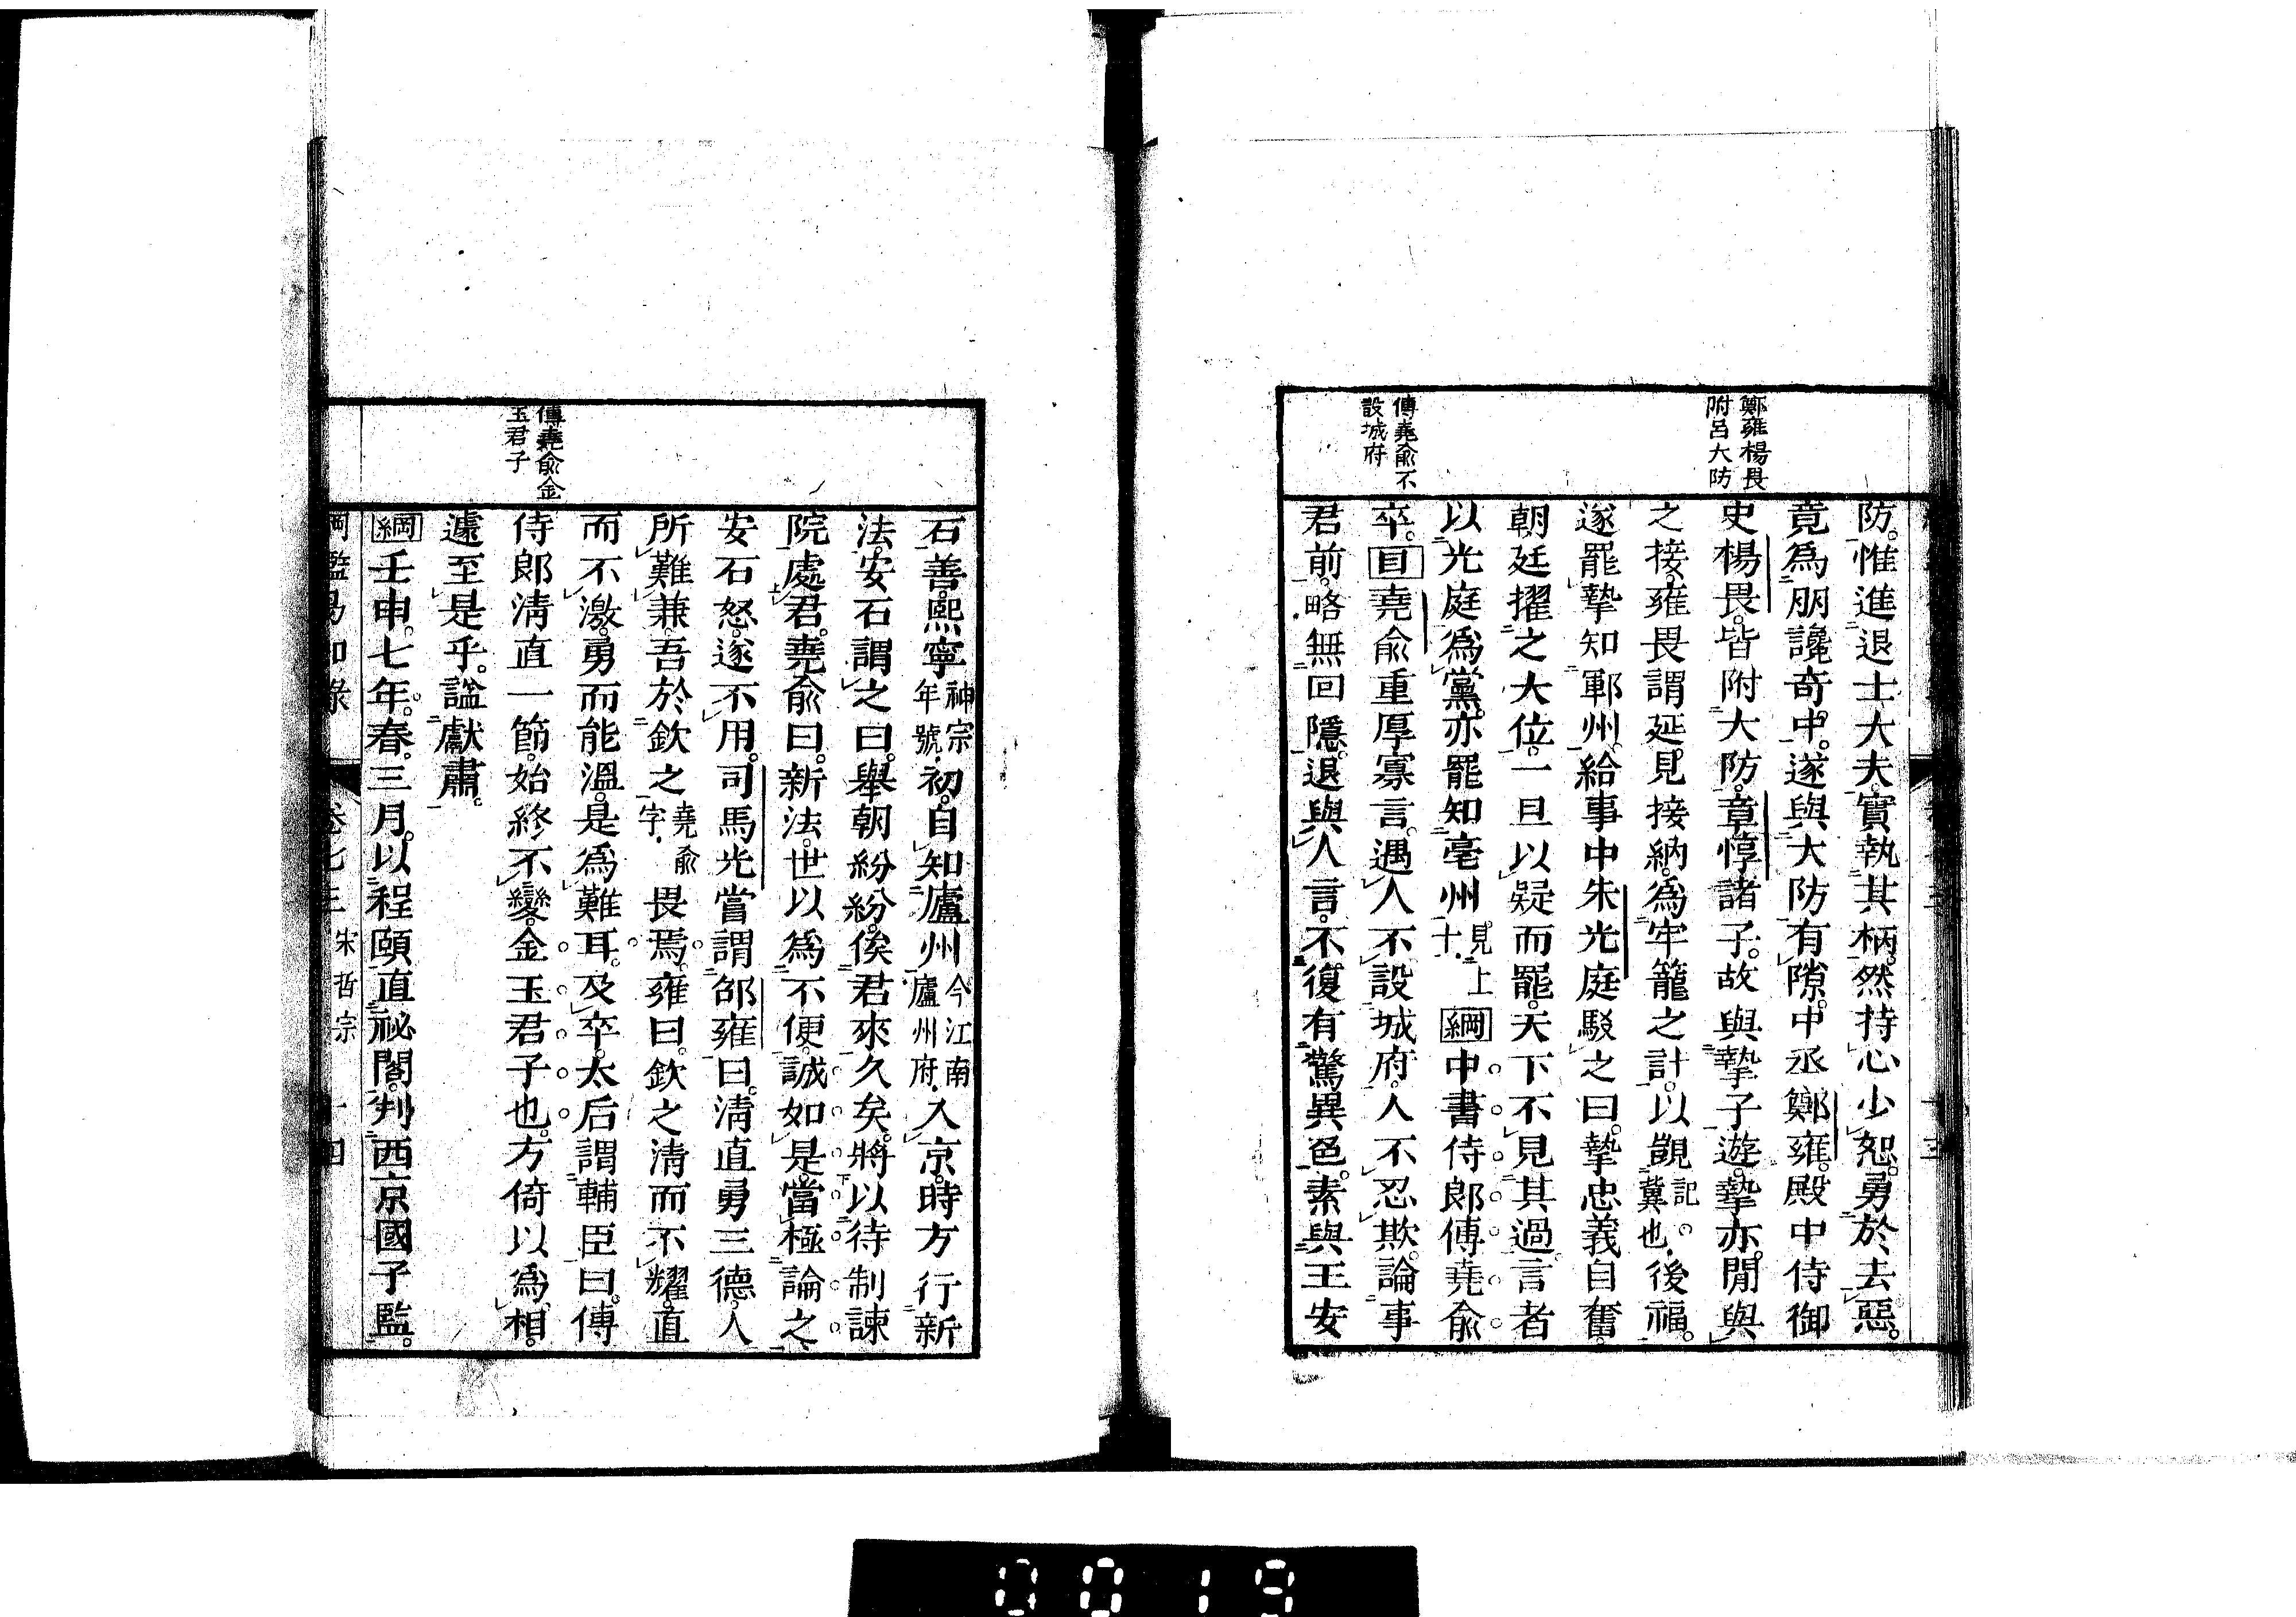 鄭雍楊畏
附呂大防
傅堯俞不
設城府
防。惟進退士大夫。實執其柄。然持心少恕。勇於去惡。
竟為朋讒奇中。遂與大防有隙。中丞鄭雍。殿中侍御
史楊畏。皆附大防。章惇諸子。故與摯子遊。摯亦。閒與
之接。雍畏謂延見接納。為牢籠之計。以覬記冀也。後福。
遂罷摯知鄆州。給事中朱光庭駁之曰。摯忠義自奮。
朝廷擢之大位。一旦以疑而罷。天下不見其過。言者
以光庭為黨。亦罷知亳州見上十。綱中書侍郎傅堯俞
卒。目堯俞重厚寡言。遇人不設城府。人不忍欺。論事
君前。略無回隱。退與人言。不復有驚異色。素與王安
傅堯俞金
玉君子
石善。熙寧神宗年號。初。自知廬州今江南廬州府。入京。時方行新
法。安石謂之曰。舉朝紛紛。俟君來久矣。將以待制諫
院處君。堯俞曰。新法。世以為不便。誠如是。當極論之。
安石怒。遂不用。司馬光嘗謂邵雍曰。清直勇三德。人
所難兼。吾於欽之堯俞字。畏焉。雍曰。欽之清而不耀。直
而不激。勇而能溫。是為難耳。及卒。太后謂輔臣曰。傅
侍郎清直一節。始終不變。金玉君子也。方倚以為相。
遽至是乎。謚獻肅。
綱壬申。七年。春。三月。以程頤直祕閣。判西京國子監。
綱鑑易知錄 卷七三 宋哲宗 十四
0019